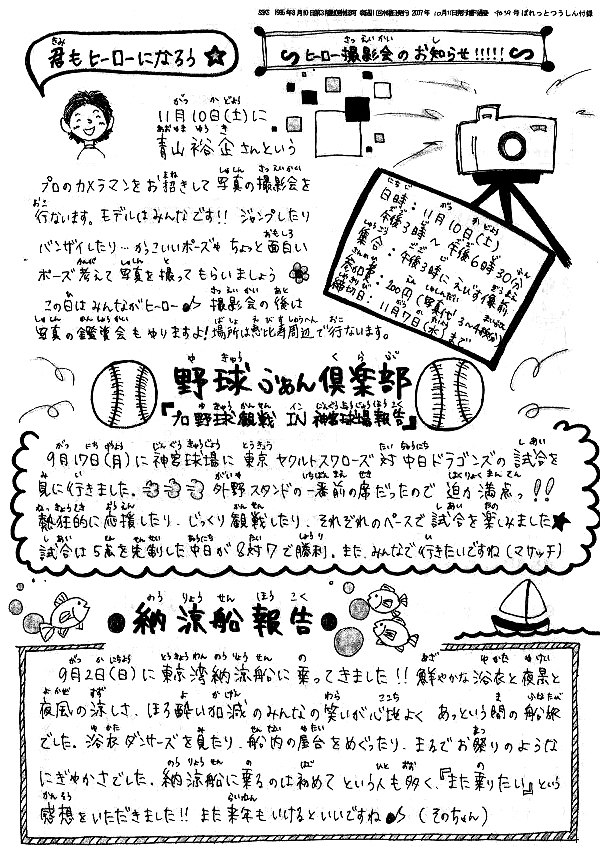 君もヒーローになろう☆
ヒーロー撮影会のお知らせ!!!!!
11月10日(土)に
青山裕企さんという
プロのカメラマンをお招きして写真の撮影会を
行ないます。モデルはみんなです!! ジャンプしたり
バンザイしたり…かっこいいポーズやちょっと面白い
ポーズ考えて写真を撮ってもらいましょう
この日はみんながヒーロー♪ 撮影会の後は
写真の鑑賞会もやりますよ!場所は恵比寿周辺で行ないます。
日時:11月10日(土)
午後3時〜午後6時30分
集合:午後3時にえびす像前
参加費:200円(写真代
締切日:11月7日(水)まで
野球ふぁん倶楽部
『プロ野球観戦 IN 神宮球場報告』
9月17日(月)に神宮球場に東京ヤクルトスワローズ対中日ドラゴンズの試合を
見に行きました。外野スタンドの一番前の席だったので迫力満点っ!!
熱狂的に応援したり、じっくり観戦したり、それぞれのペースで試合を楽しみました★
試合は5点を先制した中日が8対7で勝利。また、みんなで行きたいですね(マサッチ)
納涼船報告
9月2日(日)に東京湾納涼船に乗ってきました!! 鮮やかな浴衣と夜景と
夜風の涼しさ、ほろ酔い加減のみんなの笑いが心地よく あっという間の船旅
でした。浴衣ダンサーズを見たり、船内の屋台をめぐったり、まるでお祭りのような
にぎやかさでした。納涼船に乗るのは初めてという人も多く、『また乗りたい』という
感想をいただきました!! また来年もいけるといいですね♪ (そのちゃん)